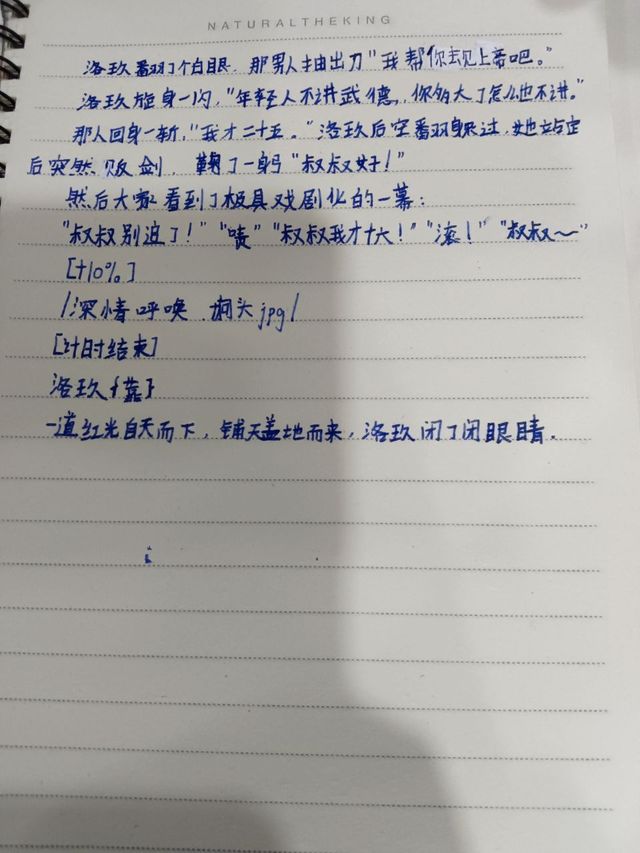 NATURALTHEKING
洛玖翻了个白眼，那男人抽出刀"我帮你去见上帝吧。"
洛玖旋身一闪，"年轻人不讲武德，你多大了怎么也不讲。"
那人回身一斩，"我才二十五。"洛玖后空翻躲过，她站定
后突然收剑，鞠了一躬"叔叔好！"
然后大家看到了极具戏剧化的一幕：
"叔叔别追了！""啧""叔叔我才十六！""滚！""叔叔～"
[+10%]
/深情呼唤.狗头jpg/
[计时结束]
洛玖{靠}
一道红光自天而下，铺天盖地而来，洛玖闭了闭眼睛。